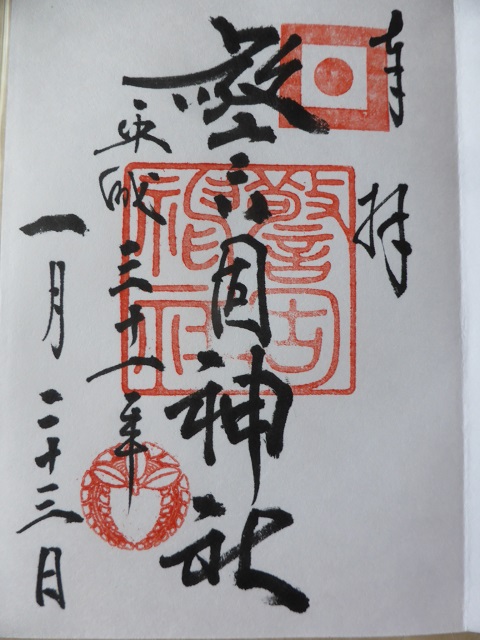 奉拝
警固神社
平成三十一年
一月二十三日
警固神社